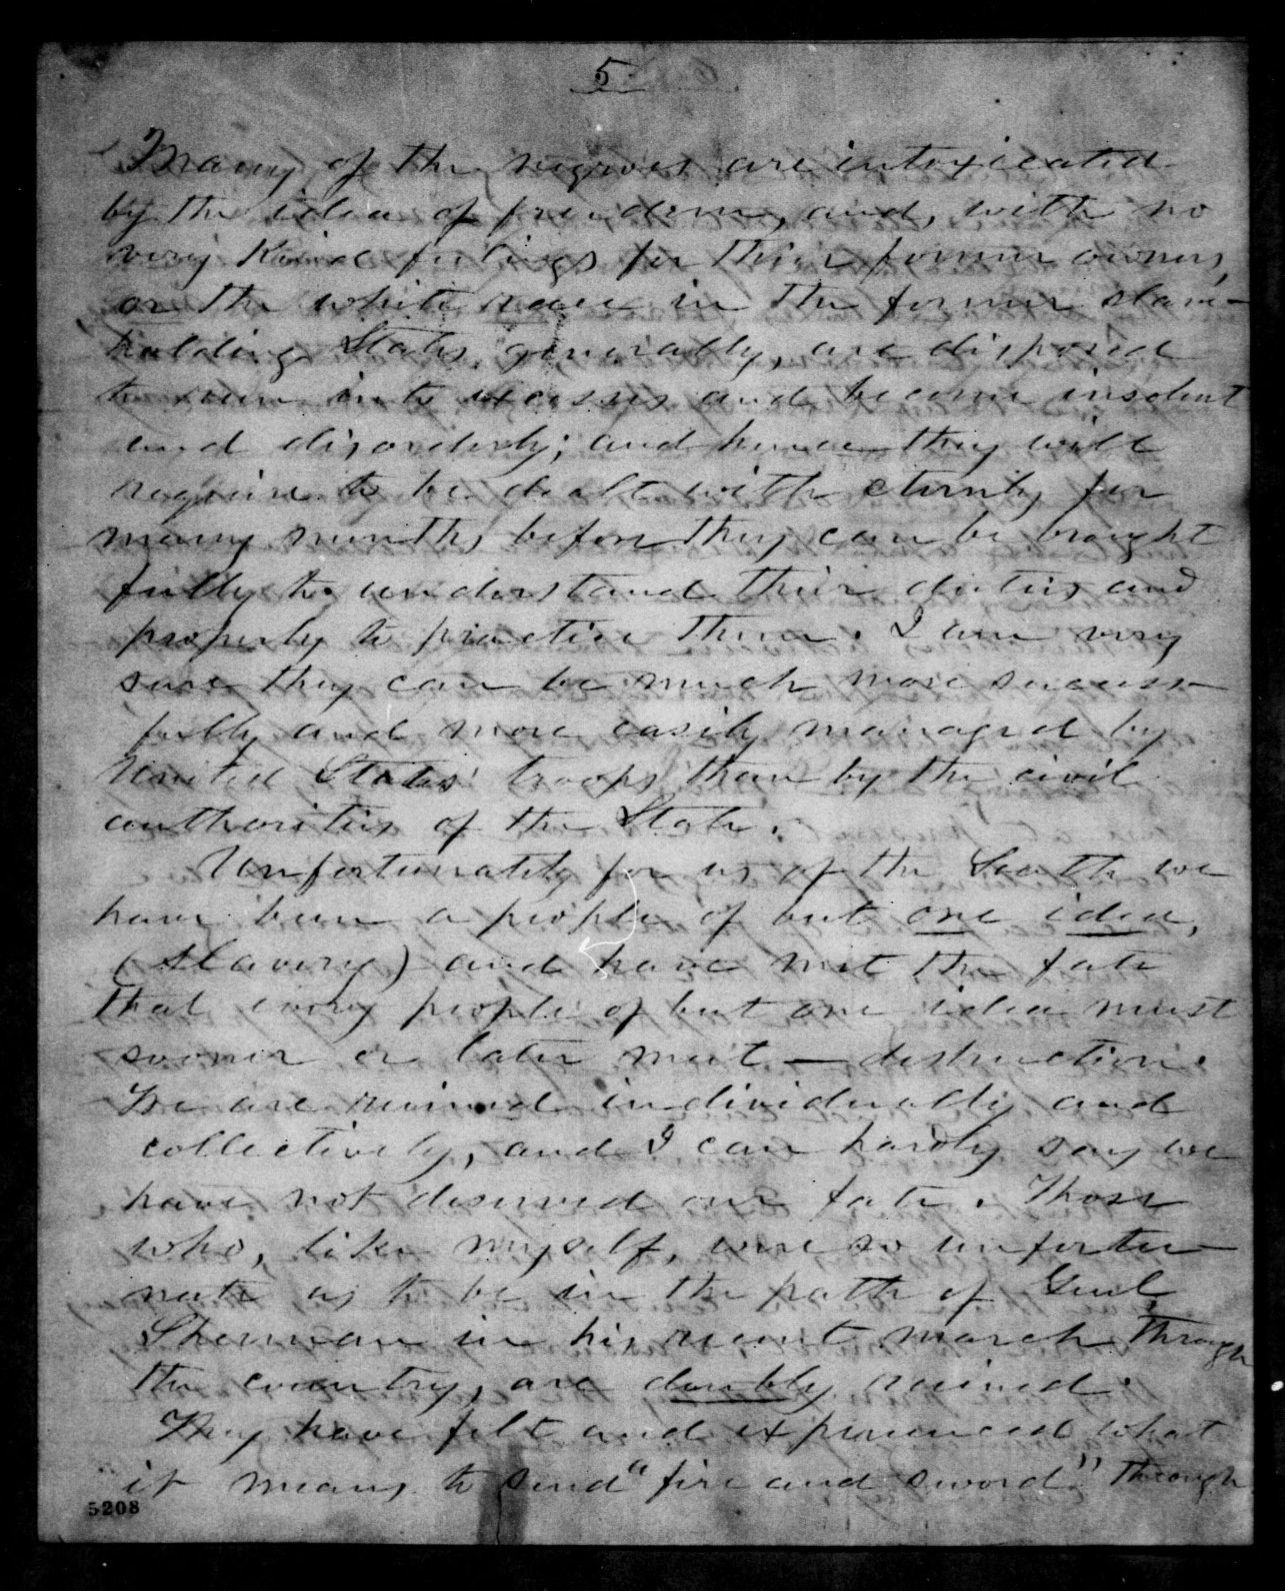 5
Many of the negroes are intoxicated
by the idea of freedom, and, with no
very kind feelings for their former owners,
or the white race in the former slave-
holding States generally, are disposed
to run into excesses and become insolent
and disorderly; and hence they will
require to be dealt with sternly for
many months before they can be brought
fully to understand their duties and
properly to practice them. I am very
sure they can be much more success-
fully and more easily managed by
United States troops than by the civil
authorities of the State.
Unfortunately for us of the South we
have been a people of but one idea,
(slavery) and have met the fate
that every people of but one idea must
sooner or later meet — destruction.
We are ruined individually and
collectively, and I can hardly say we
have not deserved our fate. Those
who, like myself, were so unfortu-
nate as to be in the path of Genl.
Sherman in his recent march through
the country, are doubly ruined.
They have felt and experienced what
it means to send "fire and sword" through
5208